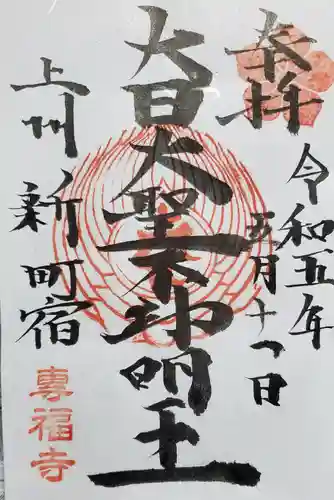 奉拝
令和五年
五月十一日
大日大聖不動明王
上州
新町宿
專福寺